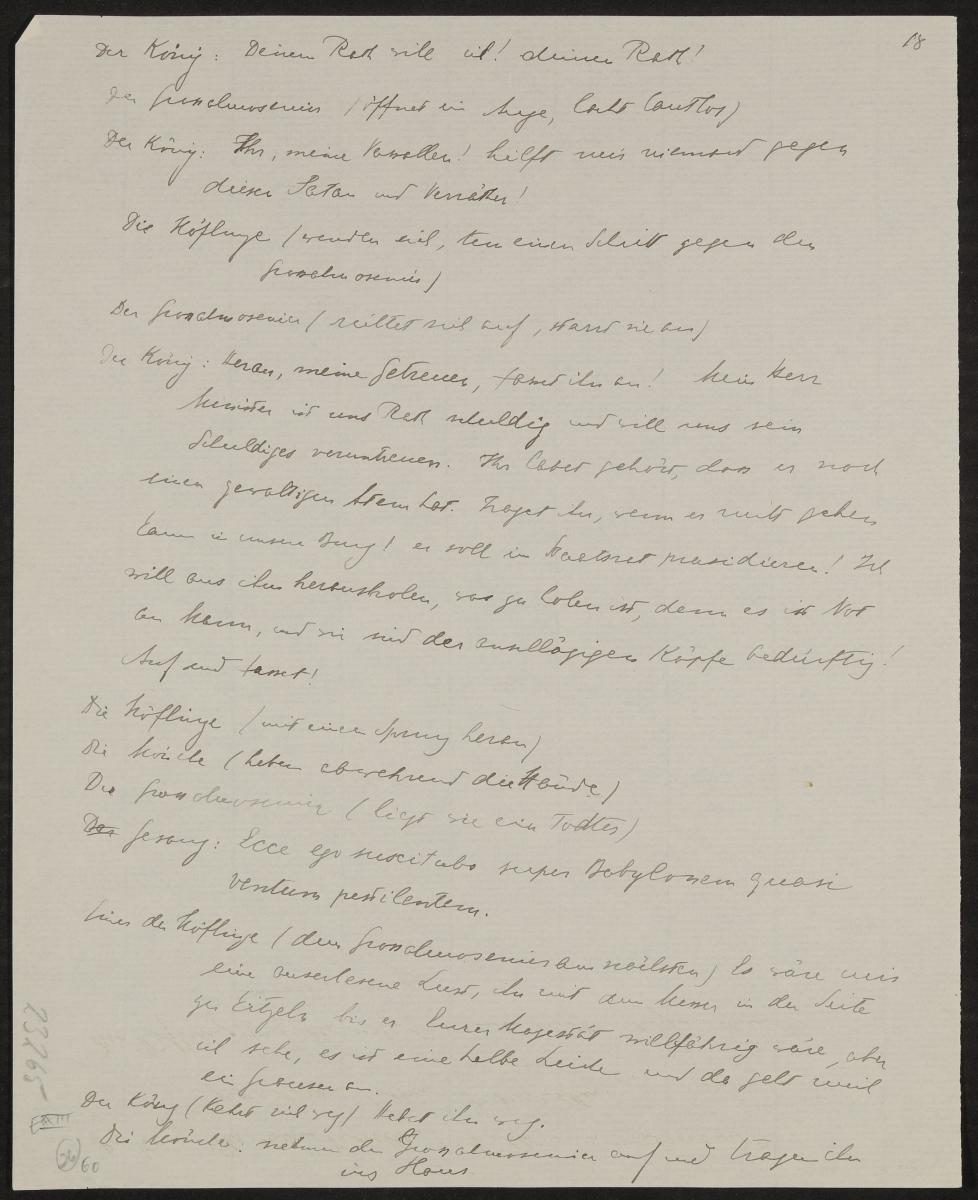 18
Der König: Deinen Rath will ich! deinen Rath!
Der Grossalmosenier (öffnet ein Auge, lacht lautlos)
Der König: Ihr, meine Vasallen! hilft mir niemand gegen
diesen Satan und Verräther!
Die Höflinge (wenden sich, tun einen Schritt gegen den
Grossalmosenier)
Der Grossalmosenier (richtet sich auf, starrt sie an)
Der König: Heran, meine Getreuen, fasset ihn an! Mein Herr
Minister ist uns Rath schuldig und will uns sein
Schuldiges veruntreuen. Ihr habet gehört, dass er noch
einen gewaltigen Atem hat. Traget ihn, wenn er nicht gehen
kann in unsere Burg! er soll im Staatsrat präsidieren! Ich
will aus ihm herausholen, was zu holen ist, denn es ist Not
an Mann, und wir sind der anschlägigen Köpfe bedürftig!
Auf und fasset!
Die Höflinge (mit einem Sprung heran)
Die Mönche (heben abwehrend die Hände)
Der Grossalmosenier (liegt wie ein Todter)
Der Gesang: Ecce ego suscitabo super Babylonem quasi
ventum pestilentem.
Einer der Höflinge (dem Grossalmosenier am nächsten) Es wäre mir
eine auserlesene Lust, ihn mit dem Messer in der Seite
zu kitzeln bis er Eurer Majestät willfährig wäre, aber
ich sehe, es ist eine halbe Leiche und da geht mich
ein Grausen an.
Der König (kehrt sich weg) Hebet ihn weg.
Die Mönche: nehmen den Grossalmosenier auf und tragen ihn
ins Haus.
23265
60